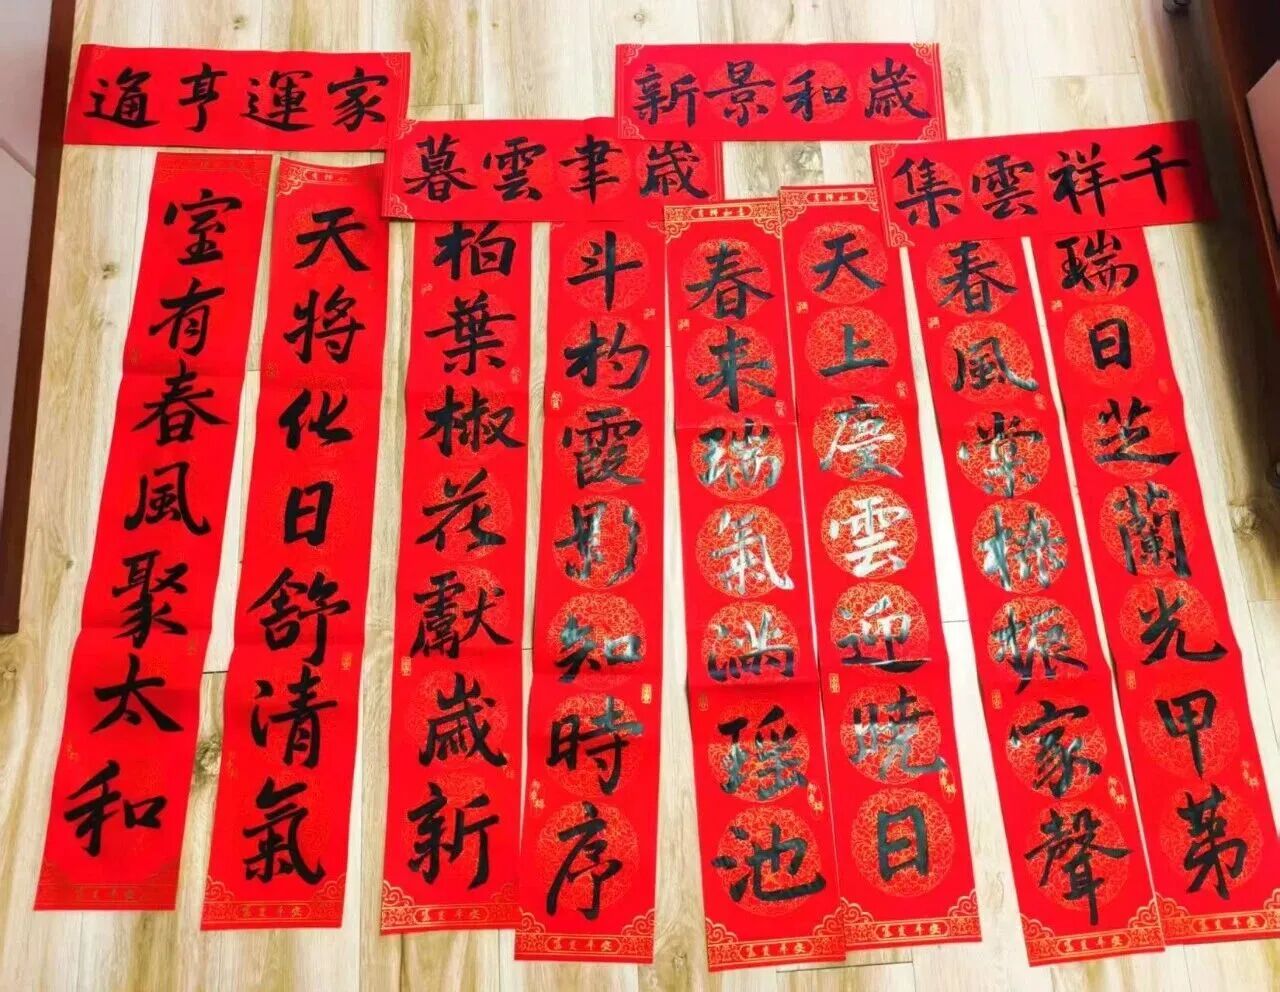 千祥雲集
瑞日芝蘭光甲第
春風棠棣振家聲
歲和景新
天上慶雲迎曉日
春来瑞氣滿瑶池
歲聿雲暮
斗杓霞影知時序
柏葉椒花獻歲新
家運亨通
天將化日舒清氣
室有春風聚太和